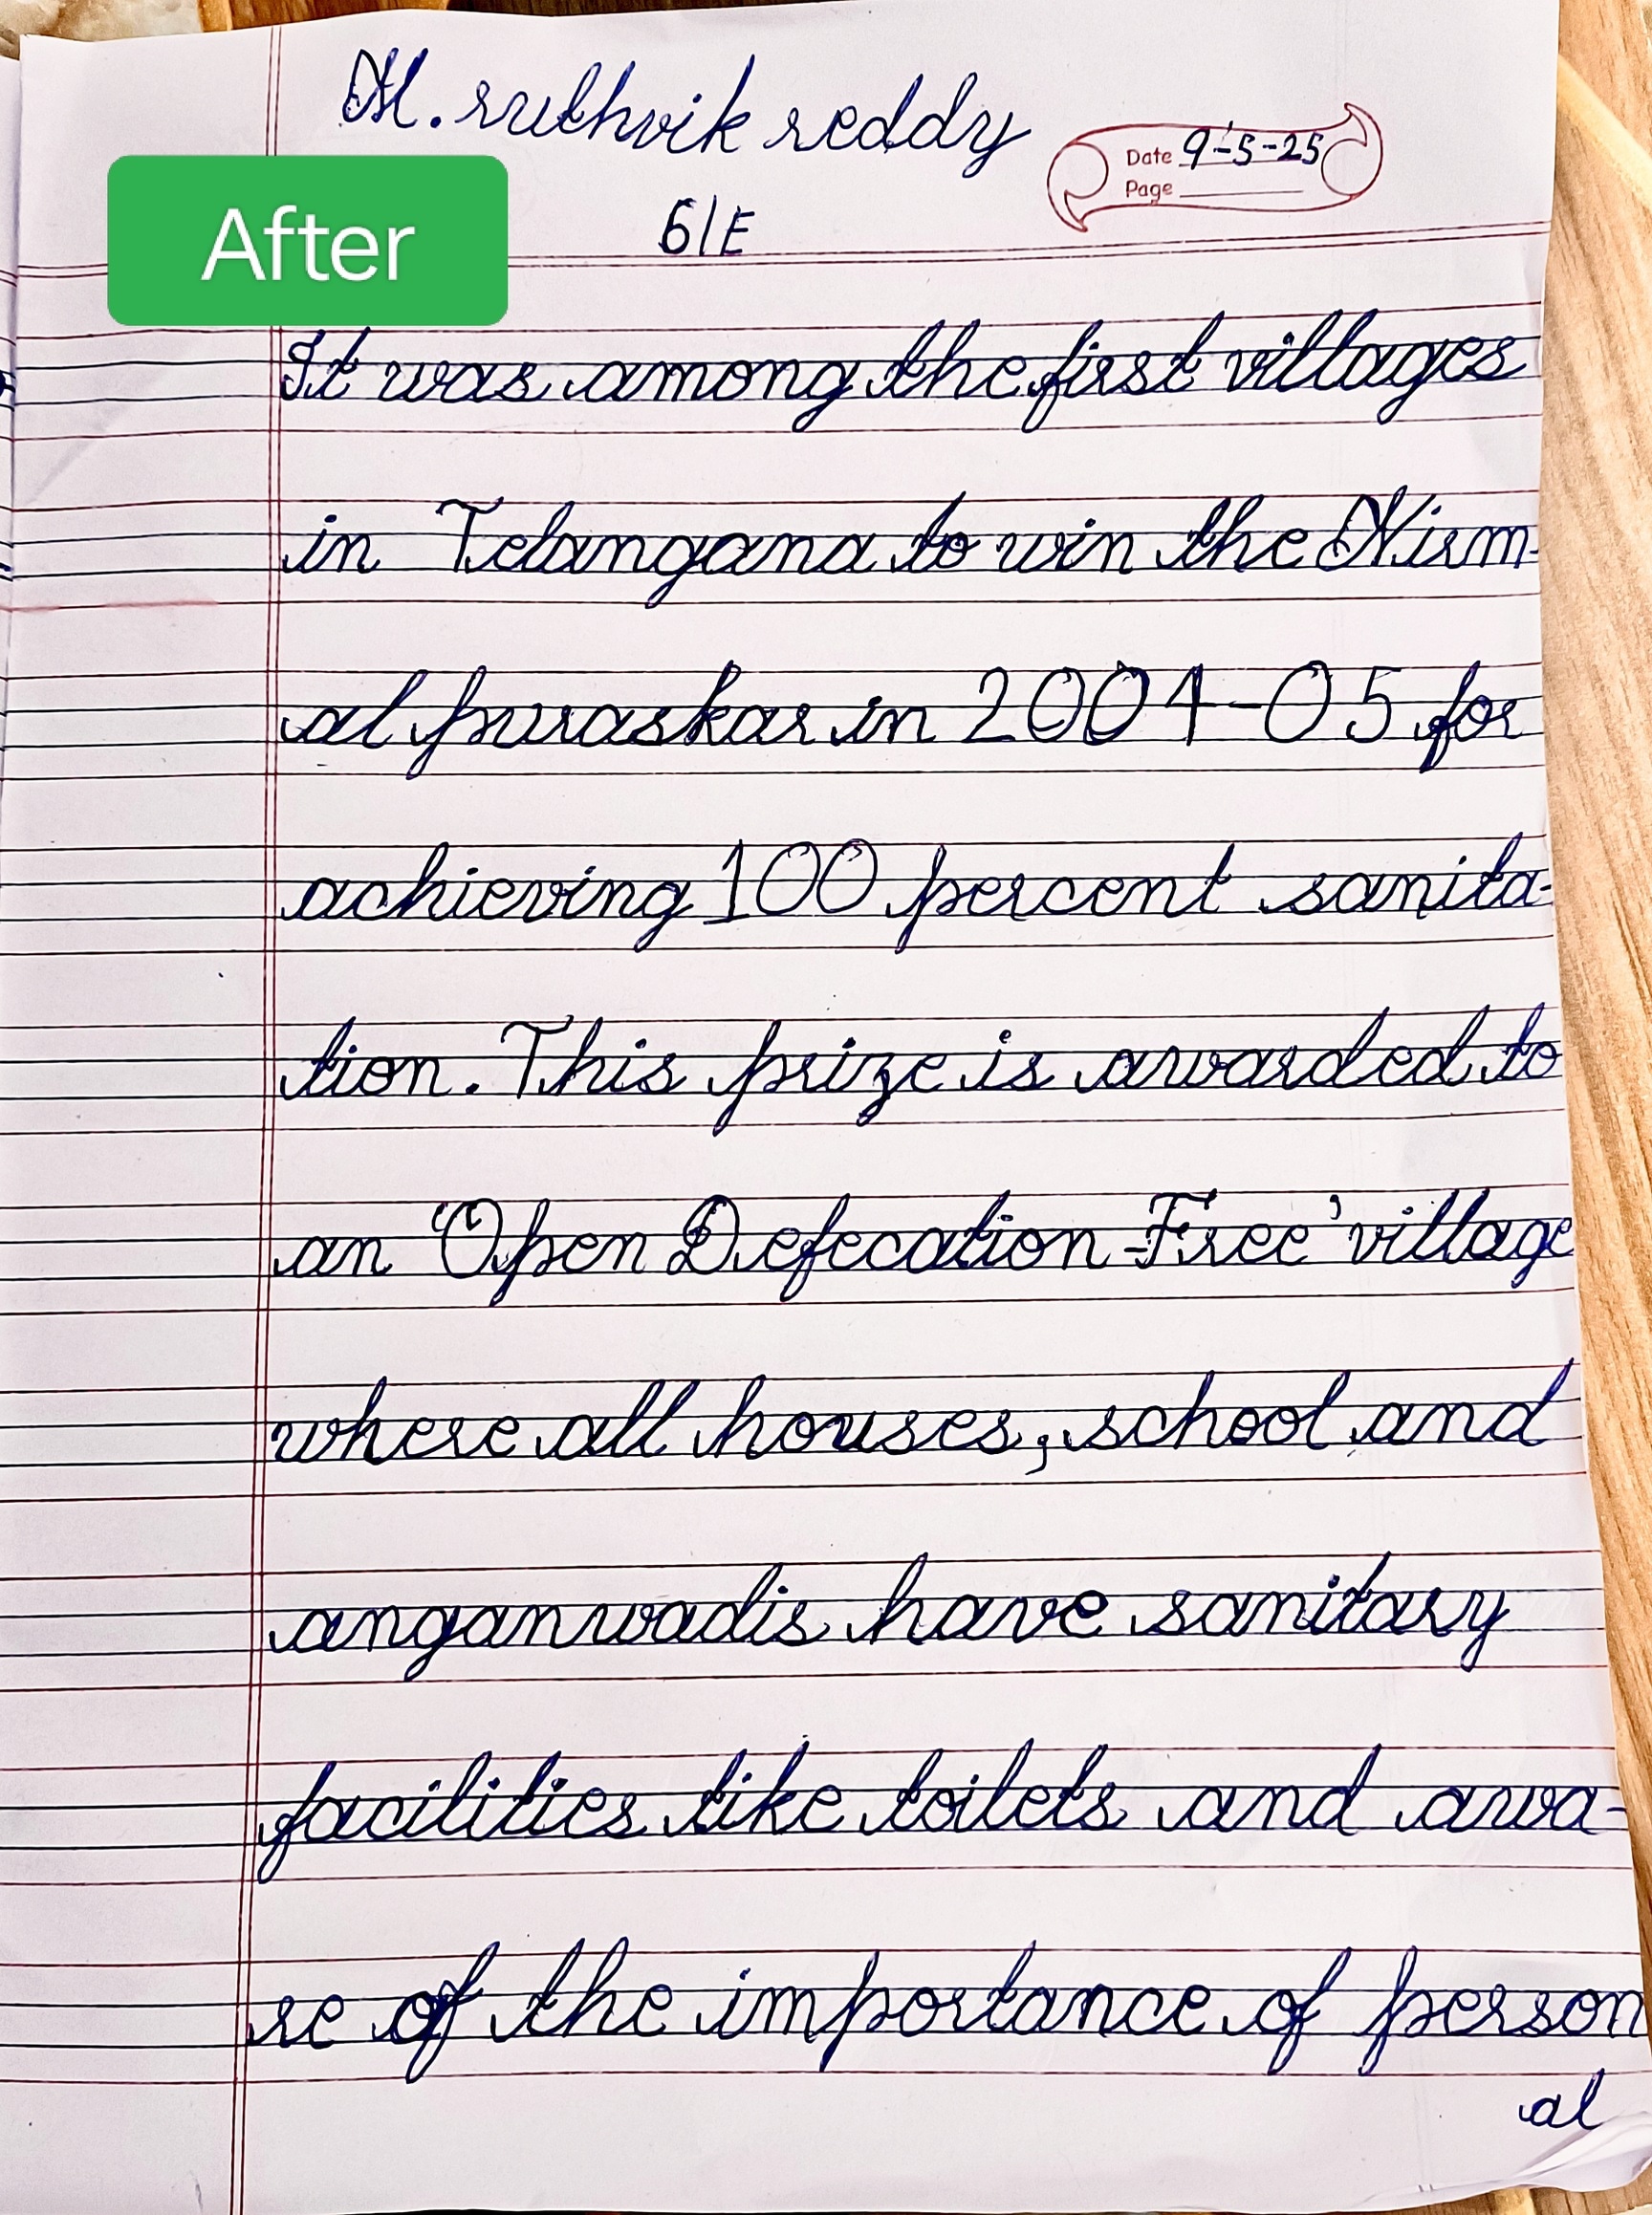 M. ruthvik reddy
Date 9-5-25
Page
6/E
After
It was among the first villages
in Telangana to win the Nirm-
al puraskar in 2004-05 for
achieving 100 percent sanita-
tion. This prize is awarded to
an 'Open Defecation-Free' village
where all houses, school and
anganwadis have sanitary
facilities like toilets and awa-
re of the importance of person
al